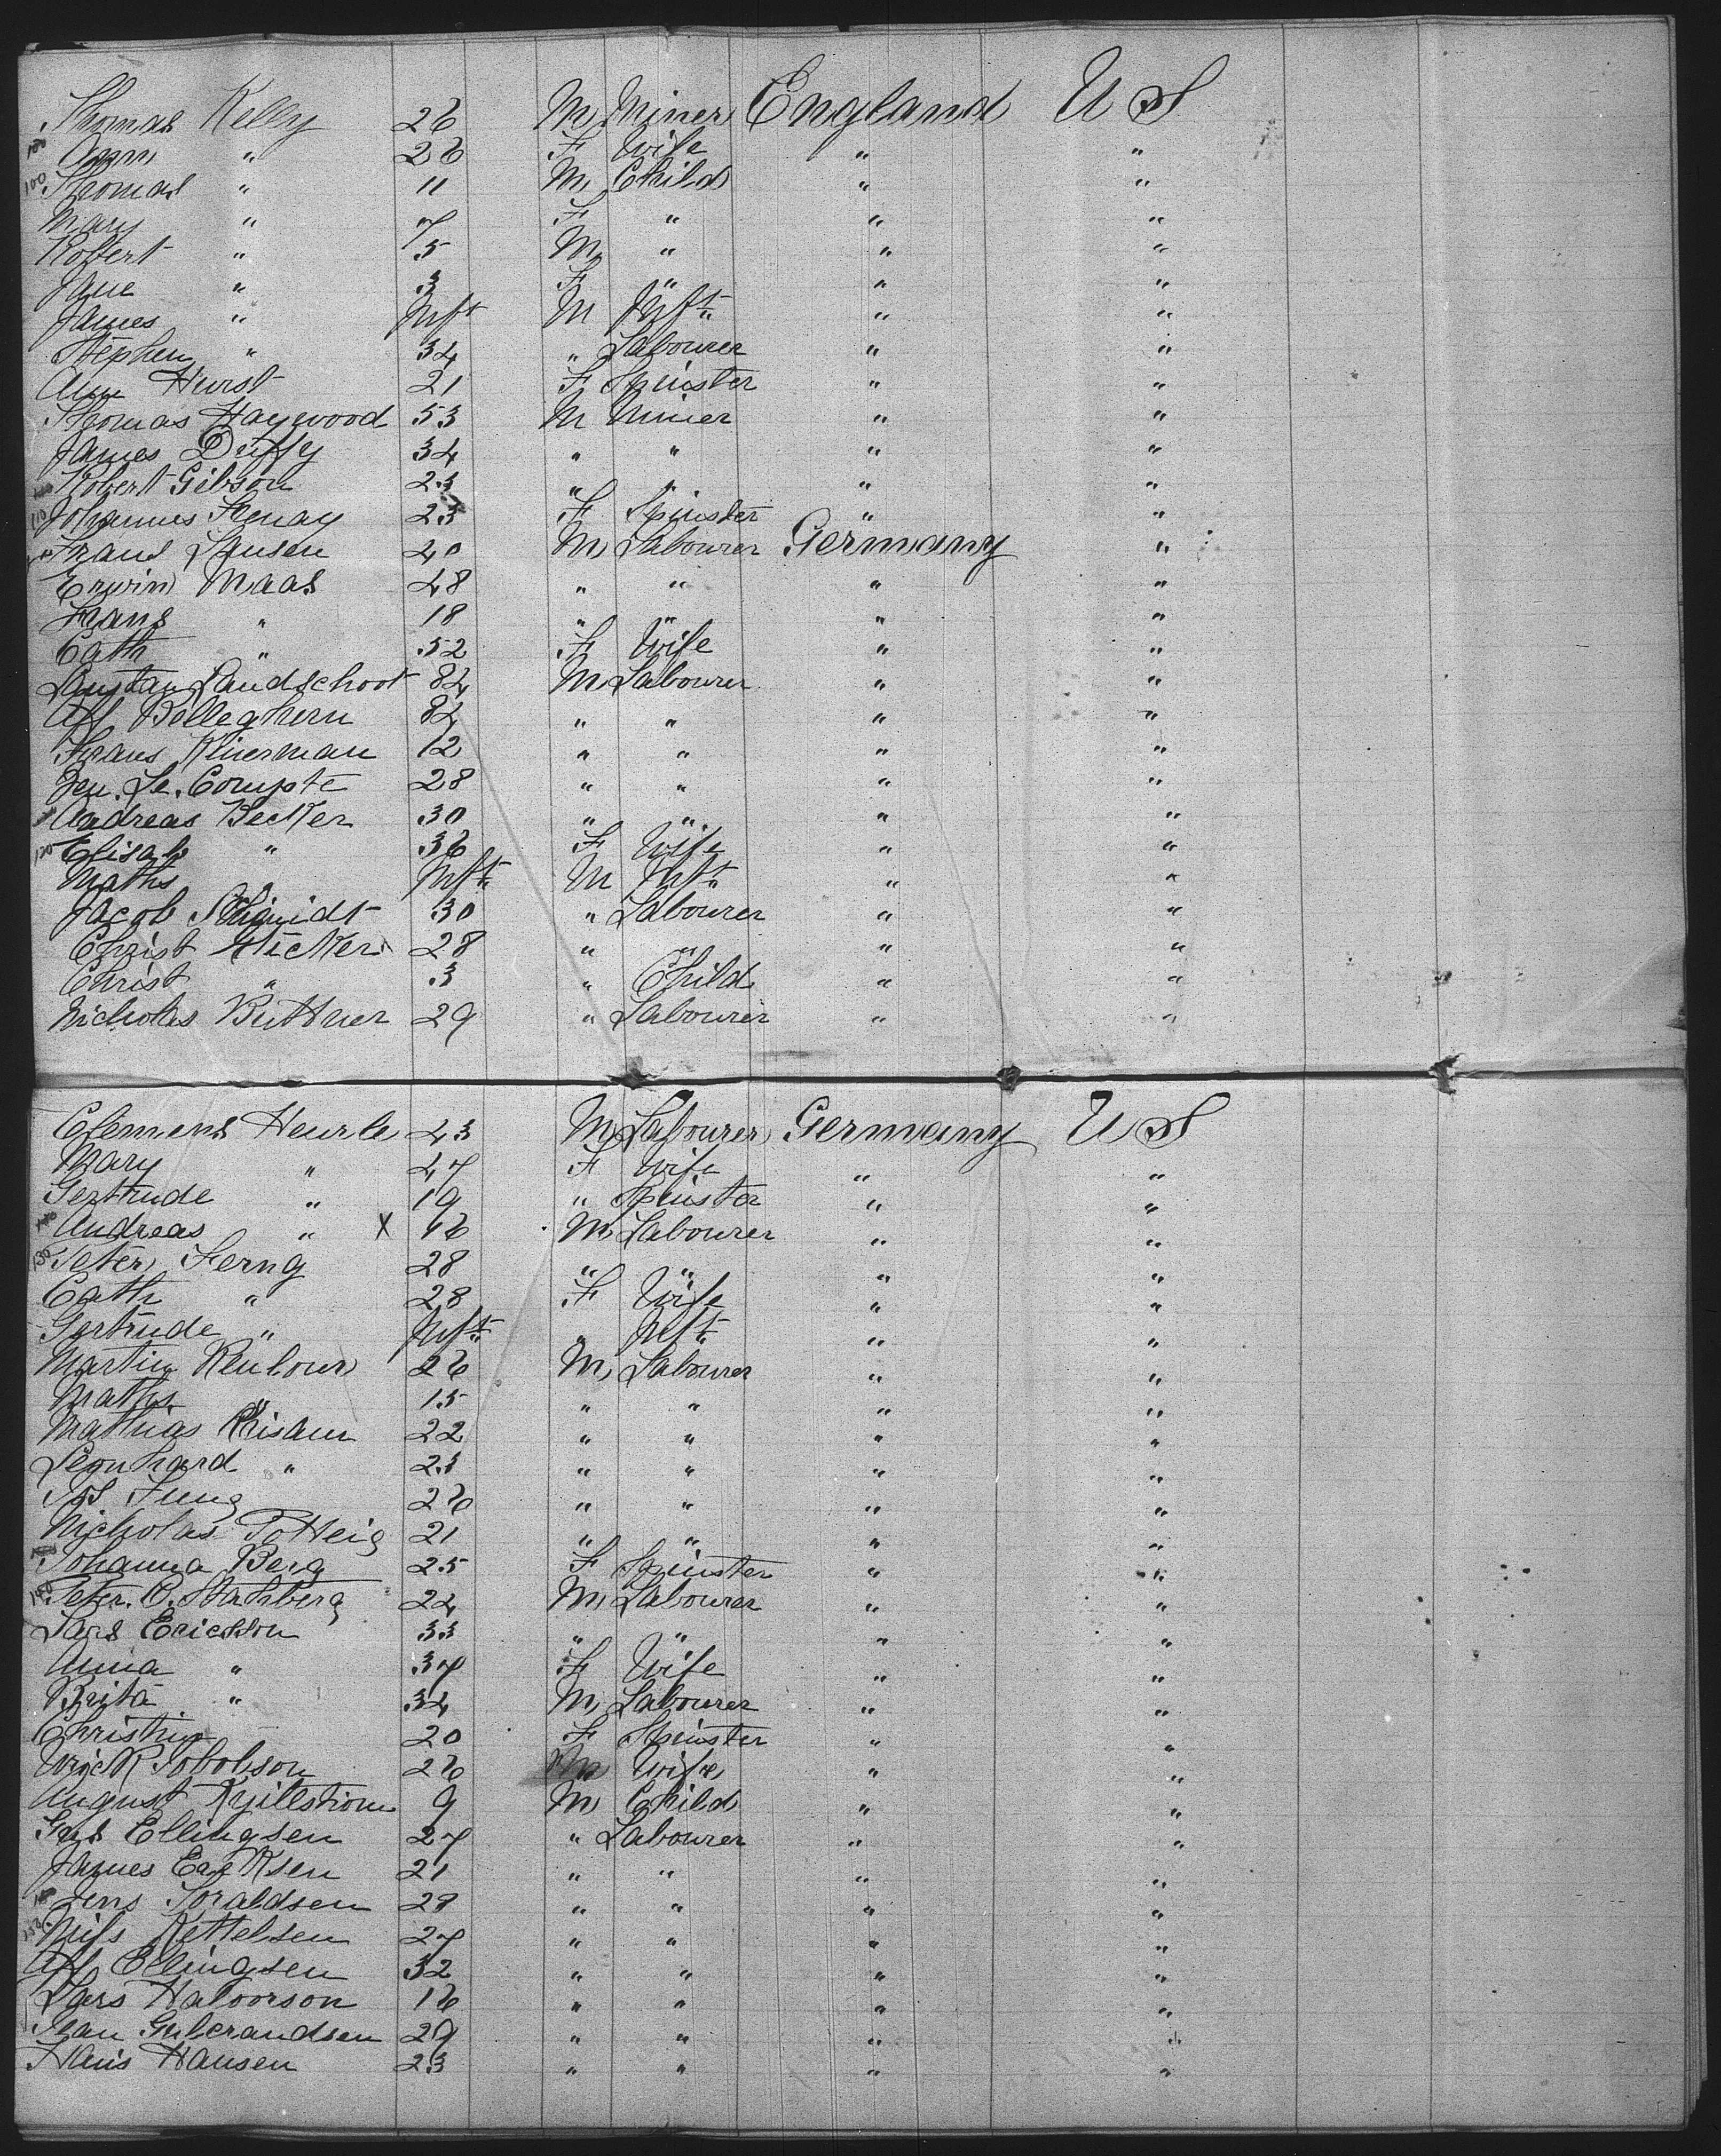 Thomas Kelly 26 M Miner England U S
Ann " 26 F Wife " "
100 Thomas " 11 M Child " "
Mary " 7 F " " "
Robert " 5 M " " "
Jane " 3 F " " "
James " Inft M Inft " "
Stephen " 34 " Labourer " "
Ann Hurst 21 F Spinster " "
Thomas Haywood 53 M Miner " "
James Duffy 34 " " " "
Robert Gibson 23 " " " "
110 Johannes 23 F Spinster " "
Frans Jansen 40 M Labourer Germany "
Erwin Maas 48 " " " "
Frans " 18 " " " "
Cath " 52 F Wife " "
Landschoot 84 M Labourer " "
Alf Belleghem 84 " " " "
Frans Kinerman 12 " " " "
Jen. Le. Compte 28 " " " "
Andreas Becker 30 " " " "
120 Elisab " 36 F Wife " "
Maths " Inft M Inft " "
Jacob Schmidt 30 " Labourer " "
Christ Hicker 28 " " " "
Christ " 3 " Child " "
Nicholas Buttner 29 " Labourer " "
Clemens Heurle 43 M Labourer Germany U S
Mary " 47 F Wife " "
Gertrude " 19 " Spinster " "
Andreas " X 16 M Labourer " "
130 Peter Ferng 28 " " " "
Cath " 28 F Wife " "
Gertrude " Inft " Inft " "
Martin Reubour 26 M Labourer " "
Maths " 15 " " " "
Mathias 22 " " " "
Leonhard " 23 " " " "
Jos Jung 26 " " " "
Nicholas Potteig 21 " " " "
Johanna Berg 25 F Spinster " "
140 Peter. O. Stahberg 24 M Labourer " "
Lars Ericsson 33 " " " "
Anna " 37 F Wife " "
Brita " 34 M Labourer " "
Christin 20 F Spinster " "
26 M Wife " "
August Kyillstrom 9 M Child " "
Gus Ellingsen 27 " Labourer " "
James Ericksen 21 " " " "
Jens Toraldsen 28 " " " "
150 Nils Kettelsen 27 " " " "
Alf Ellingsen 32 " " " "
Lars Halvorson 16 " " " "
Gulbrandsen 29 " " " "
Hans Hansen 23 " " " "